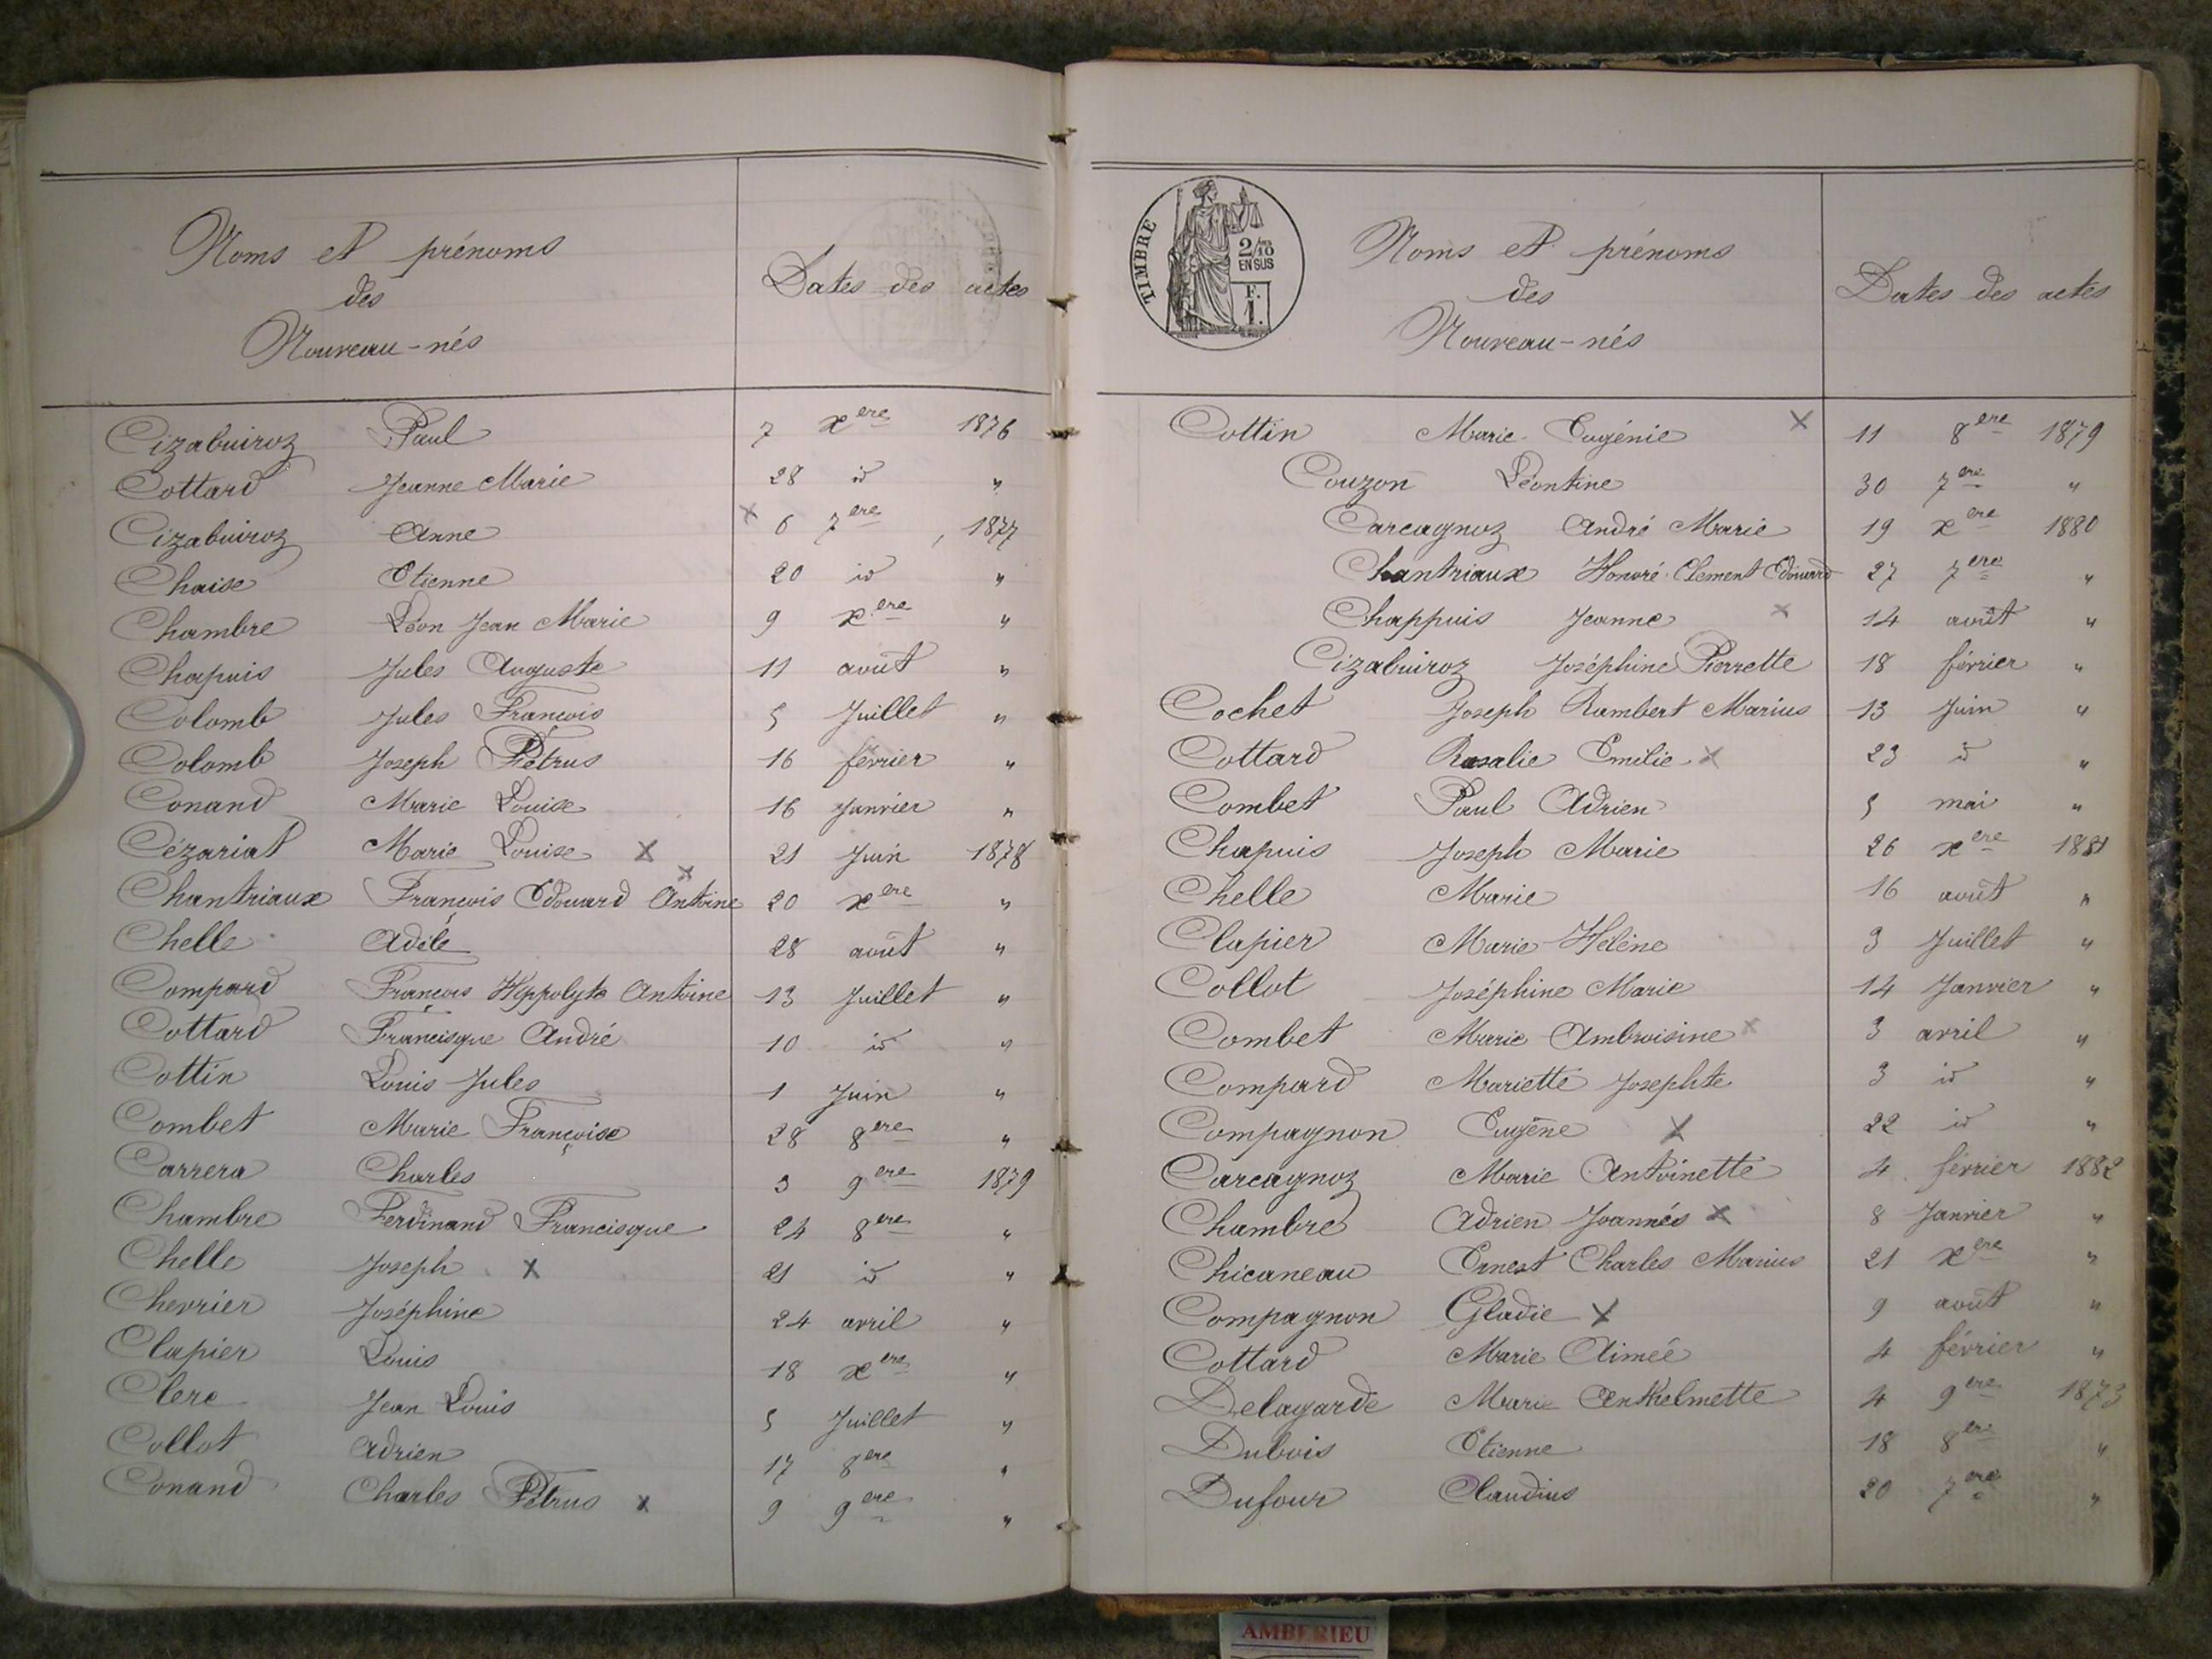 Noms et prénoms
des
Nouveau-nés
Dates des actes
Cizabuiroz Paul 7 xere 1876
Cottard Jeanne Marie 28 id "
Cizabuiroz Anne x 6 7ere, 1877
Chaise Etienne 20 id "
Chambre Léon Jean Marie 9 xere "
Chapuis Jules Auguste 11 août "
Colomb Jules François 5 Juillet "
Colomb Joseph Pétrus 16 février "
Conand Marie Louise 16 Janvier "
Cézariat Marie Louise x 21 Juin 1878
Chantriaux François Edouard Antoine x 20 xere "
Chelle Adèle 28 août "
Compard François Hippolyte Antoine 13 Juillet "
Cottard Francisque André 10 id "
Cottin Louis Jules 1 Juin "
Combet Marie Françoise 28 8ere "
Carrera Charles 3 9ere 1879
Chambre Ferdinand Francisque 24 8ere "
Chelle Joseph x 21 id "
Chevrier Joséphine 24 avril "
Clapier Louis 18 xere "
Clerc Jean Louis 5 Juillet "
Collot Adrien 17 8ere "
Conand Charles Pétrus x 9 9ere "
TIMBRE
2/10
EN SUS
F.
1.
Noms et prénoms
des
Nouveau-nés
Dates des actes
Cottin Marie Eugénie x 11 8ere 1879
Couzon Léontine 30 7ere "
Carcagnoz André Marie 19 xere 1880
Chantriaux Honoré Clement Edouard 27 7ere "
Chappuis Jeanne x 14 août "
Cizabuiroz Joséphine Pierrette 18 février "
Cochet Joseph Rambert Marius 13 Juin "
Cottard Rosalie Emilie x 23 id "
Combet Paul Adrien 5 mai "
Chapuis Joseph Marie 26 xere 1881
Chelle Marie 16 août "
Clapier Marie Hélène 3 Juillet "
Collot Joséphine Marie 14 Janvier "
Combet Marie Ambroisine x 3 avril "
Compard Mariette Josephte 3 id "
Compagnon Eugène x 22 id "
Carcagnoz Marie Antoinette 4 février 1882
Chambre Adrien Joannés x 8 Janvier "
Chicaneau Ernest Charles Marius 21 xere "
Compagnon Gladie x 9 août "
Cottard Marie Aimée 4 février "
Delagarde Marie Anthelmette 4 9ere 1873
Dubois Etienne 18 8ere "
Dufour Claudius 20 7ere "
AMBERIEU